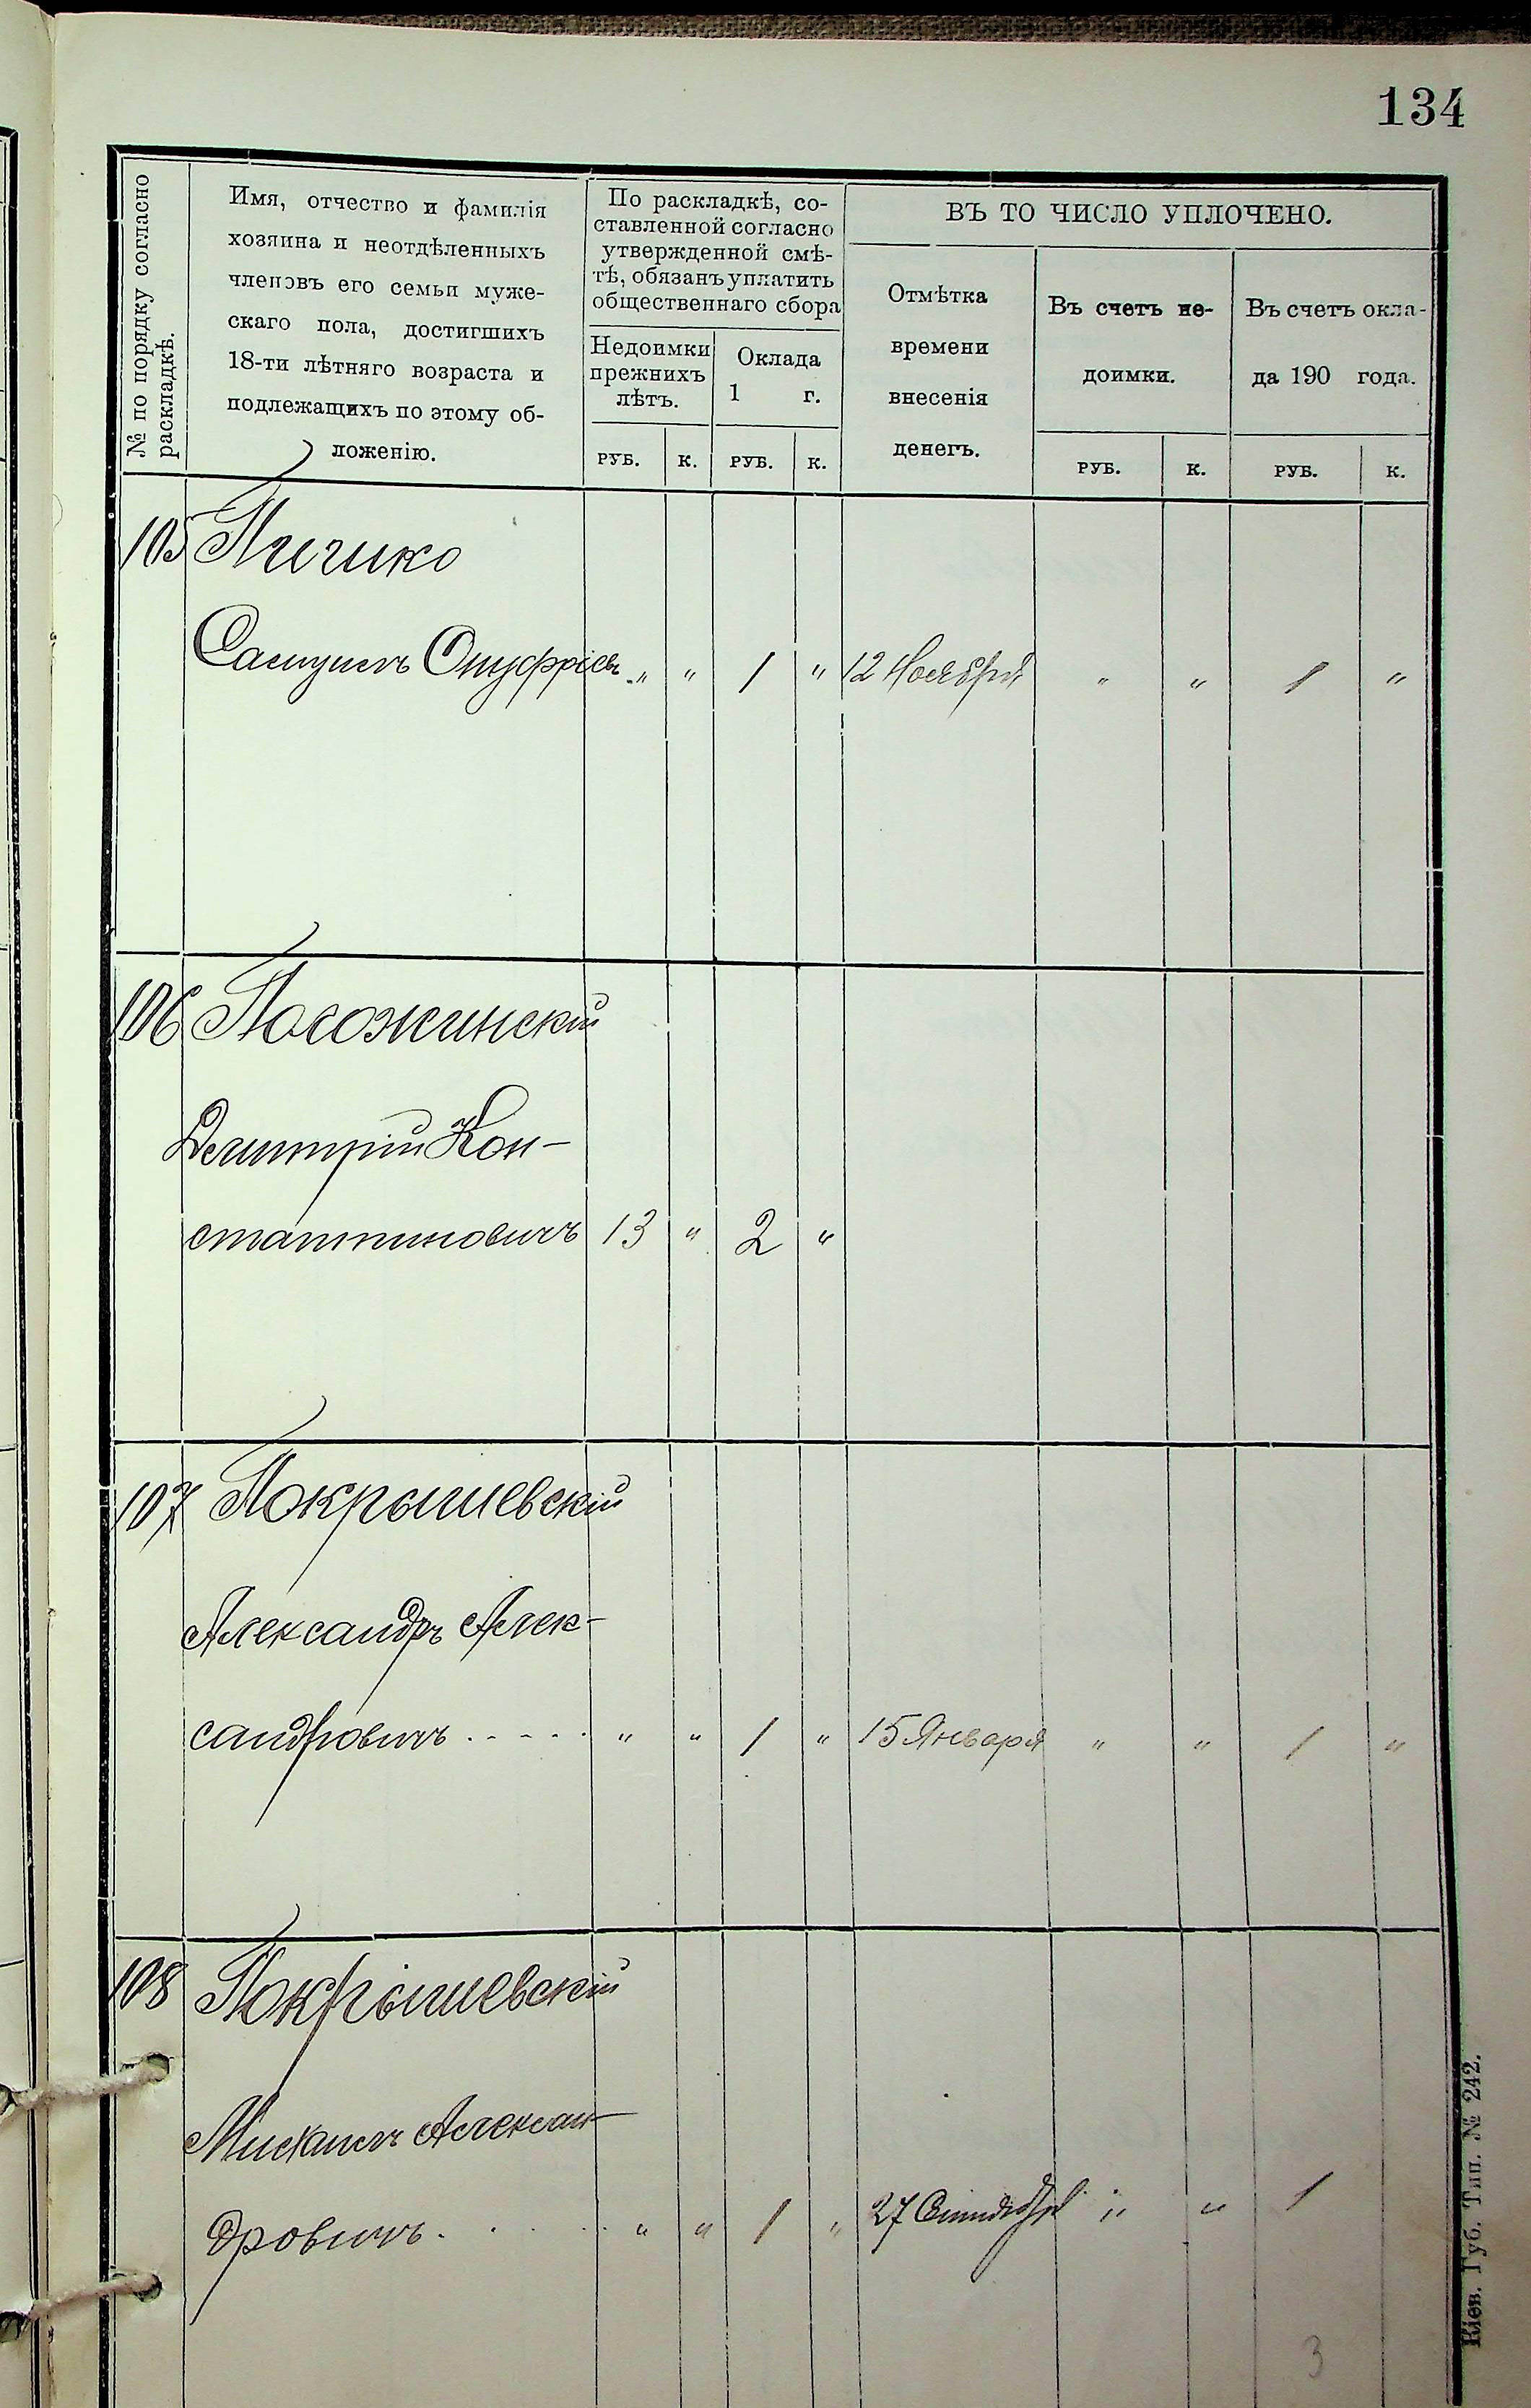 134
№ по порядку согласно
раскладкѣ.
Имя, отчество и фамилія
хозяина и неотдѣленныхъ
членовъ его семьи муже-
скаго пола, достигшихъ
18-ти лѣтняго возраста и
подлежащихъ по этому об-
ложенію.
По раскладкѣ, со-
ставленной согласно
утвержденной смѣ-
тѣ, обязанъ уплатить
общественнаго сбора
Недоимки
прежнихъ
лѣтъ.
Оклада
1 г.
РУБ. К. РУБ. К.
ВЪ ТО ЧИСЛО УПЛОЧЕНО.
Отмѣтка
времени
внесенія
денегъ.
Въ счетъ не-
доимки.
Въ счетъ окла-
да 190 года.
РУБ. К. РУБ. К.
105 Пичико
Самуилъ Онуфріевъ „ „ 1 „ 12 Ноября „ „ 1 „
106 Погожинскій
Дмитрій Кон-
стантиновичъ 13 „ 2 „
107 Покрышевскій
Александръ Алек-
сандровичъ - - - - - „ „ 1 „ 15 Января „ „ 1 „
108 Покрышевскій
Михаилъ Алексан-
дровичъ. . . . . „ „ 1 „ 27 „ „ 1
3
Кіев. Губ. Тип. № 242.